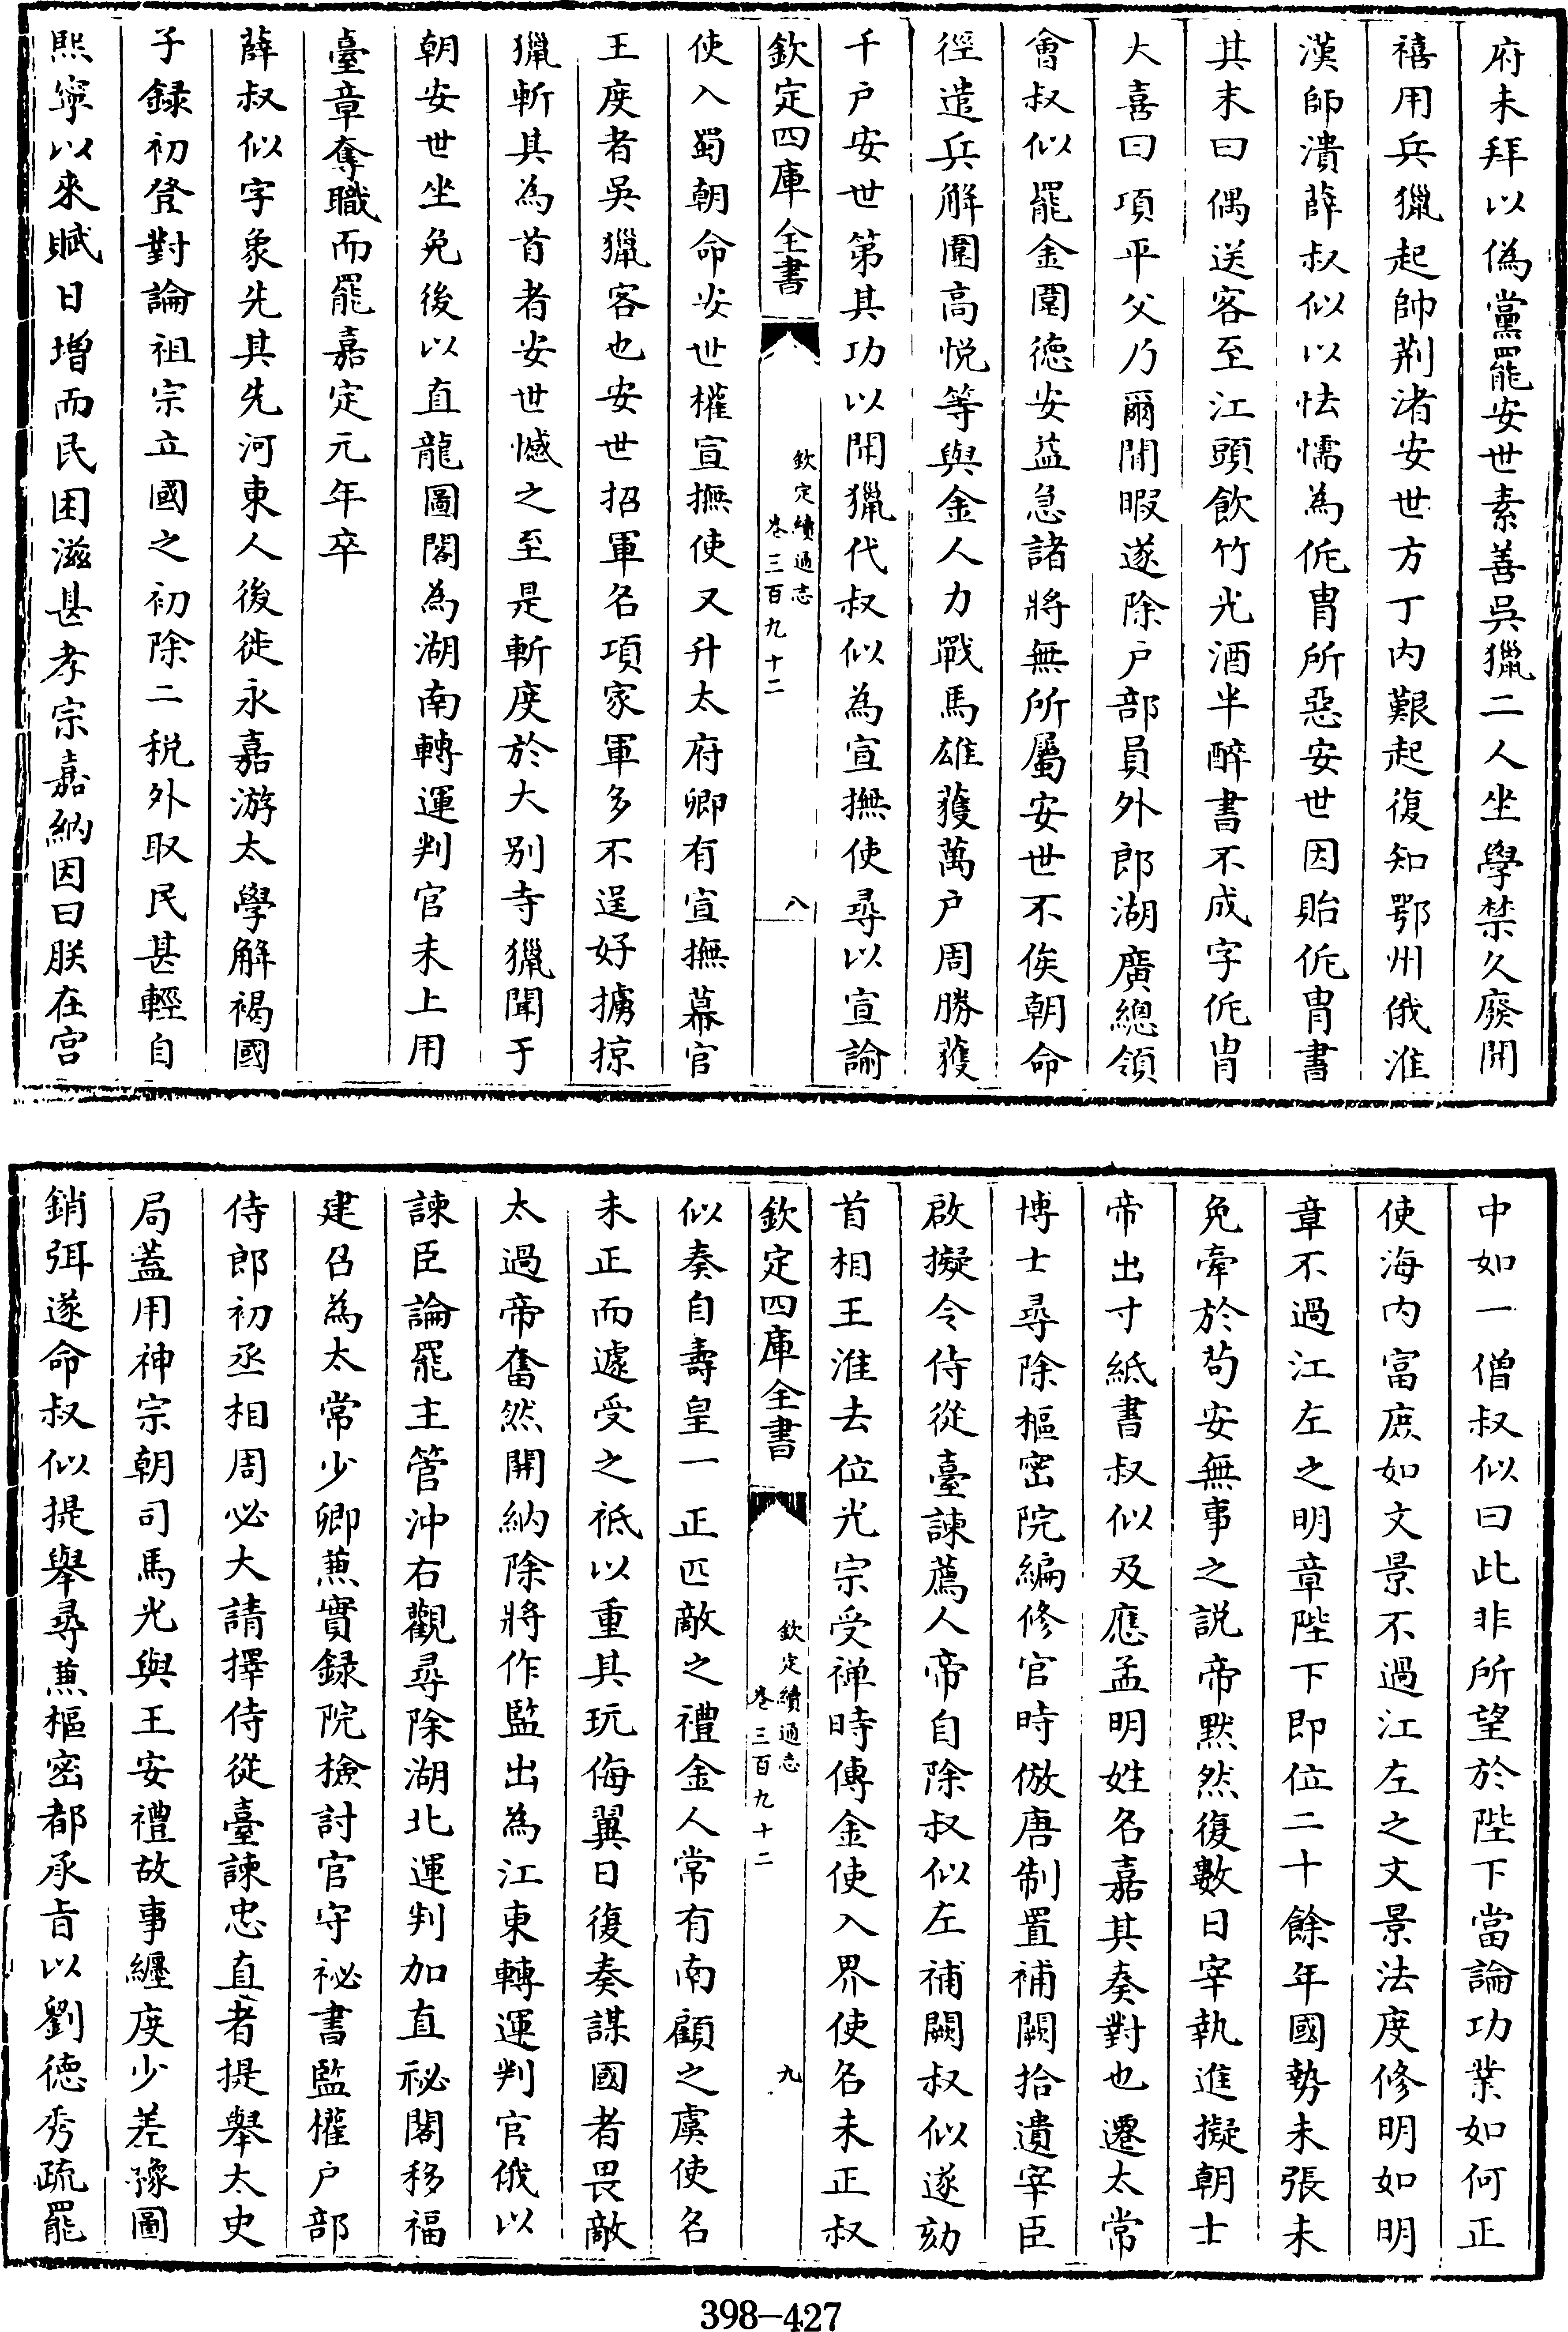 府未拜以偽黨罷安世素善吳獵二人坐學禁久廢開
禧用兵獵起帥荆渚安世方丁内艱起復知鄂州俄淮
漢師潰薛叔似以怯懦為侂冑所惡安世因貽侂冑書
其末曰偶送客至江頭飲竹光酒半醉書不成字侂冑
大喜曰項平父乃爾閒暇遂除户部員外郎湖廣總領
會叔似罷金圍徳安益急諸將無所屬安世不俟朝命
徑遣兵解圍高悦等與金人力戰馬雄獲萬户周勝獲
千户安世第其功以聞獵代叔似為宣撫使尋以宣諭
欽定四庫全書
欽定續通志
卷三百九十二
八
使入蜀朝命安世權宣撫使又升太府卿有宣撫幕官
王度者吳獵客也安世招軍名項家軍多不逞好擄掠
獵斬其為首者安世憾之至是斬度於大别寺獵聞于
朝安世坐免後以直龍圖閣為湖南轉運判官未上用
臺章奪職而罷嘉定元年卒
薛叔似字象先其先河東人後徙永嘉游太學解褐國
子録初登對論祖宗立國之初除二税外取民甚輕自
熙寧以來賦日増而民困滋甚孝宗嘉納因曰朕在宫
中如一僧叔似曰此非所望於陛下當論功業如何正
使海内富庶如文景不過江左之文景法度修明如明
章不過江左之明章陛下即位二十餘年國勢未張未
免牽於苟安無事之説帝默然復數日宰執進擬朝士
帝出寸紙書叔似及應孟明姓名嘉其奏對也遷太常
博士尋除樞密院編修官時倣唐制置補闕拾遺宰臣
啟擬令侍從臺諫薦人帝自除叔似左補闕叔似遂劾
首相王淮去位光宗受禅時傳金使入界使名未正叔
欽定四庫全書
欽定續通志
卷三百九十二
九
似奏自壽皇一正匹敵之禮金人常有南顧之虞使名
未正而遽受之祗以重其玩侮翼日復奏謀國者畏敵
太過帝奮然開納除將作監出為江東轉運判官俄以
諫臣論罷主管沖右觀尋除湖北運判加直祕閣移福
建召為太常少卿蒹實録院檢討官守祕書監權户部
侍郎初丞相周必大請擇侍從臺諫忠直者提舉太史
局蓋用神宗朝司馬光與王安禮故事纒度少差豫圖
銷弭遂命叔似提舉尋蒹樞密都承旨以劉徳秀疏罷
398-427